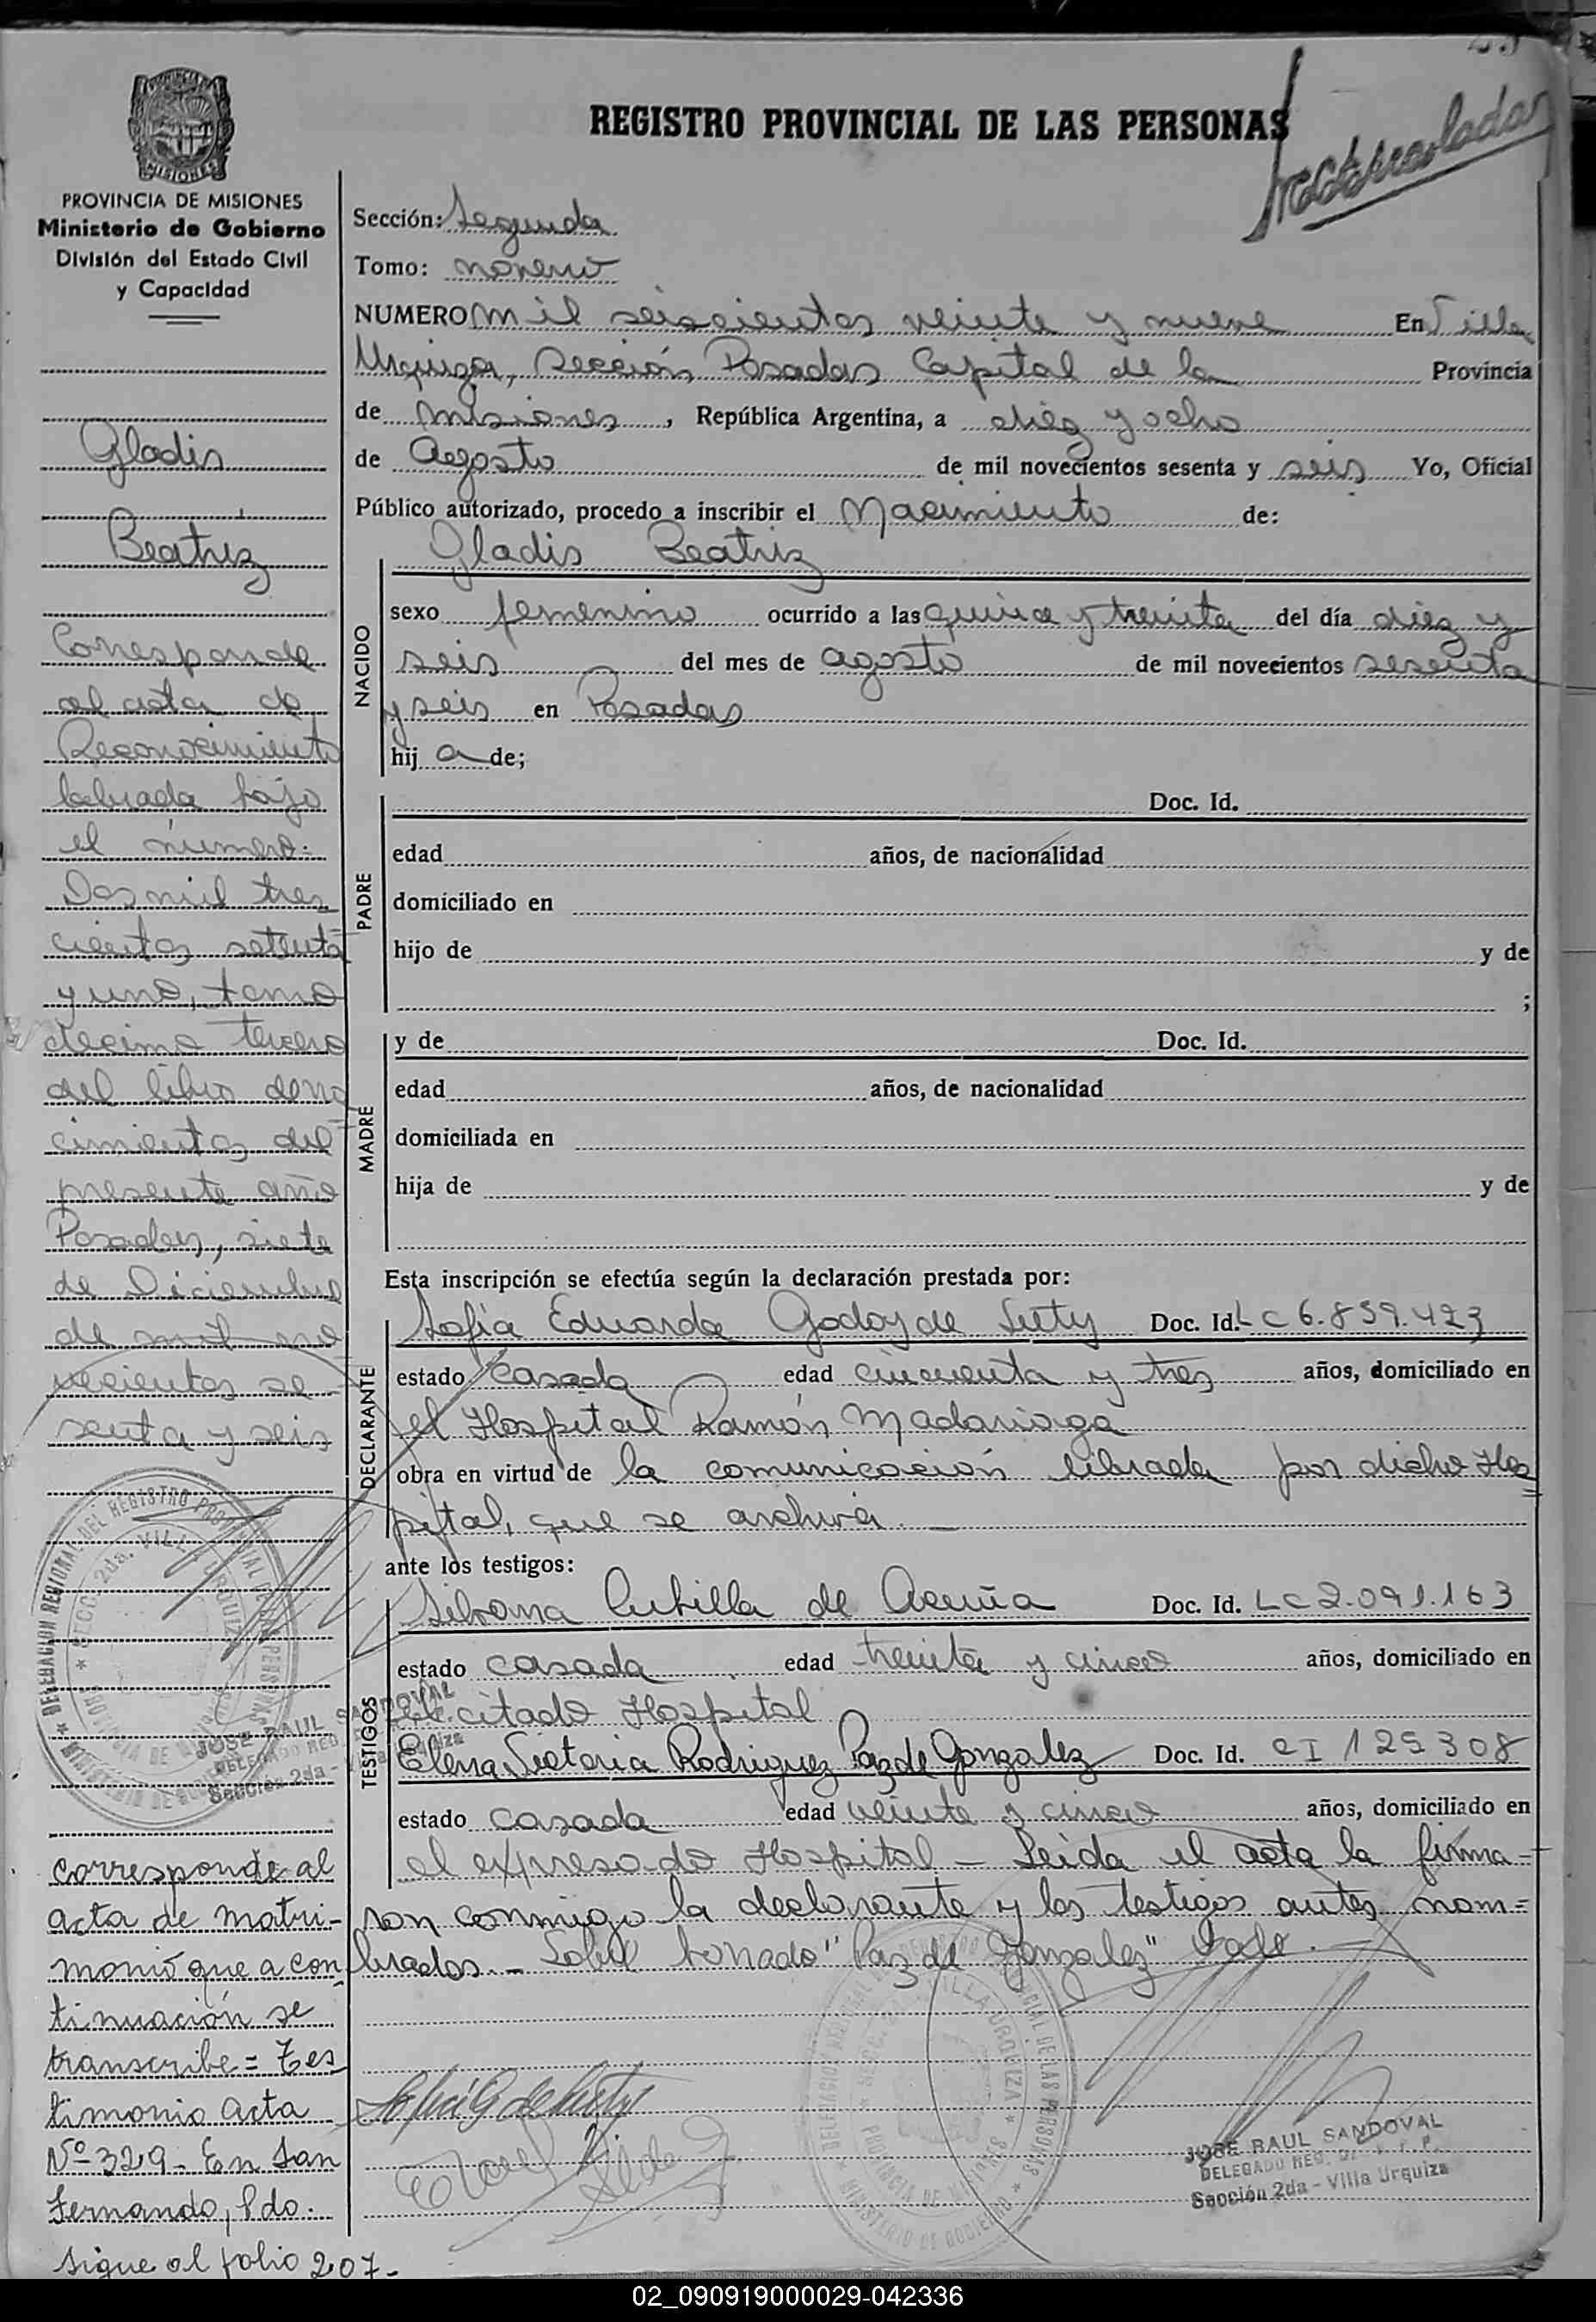 REGISTRO PROVINCIAL DE LAS PERSONAS
MISIONES
PROVINCIA DE MISIONES
Ministerio de Gobierno
División del Estado Civil
y Capacidad
Gladis
Beatriz
Corresponde
al acta de
Reconocimiento
labrada bajo
el número:
Dos mil tres
cientos setenta
y uno, tomo
decimo tercero
del libro de na
cimientos del
presente año
Posadas, siete
de Diciembre
de mil no
vecientos se
senta y seis
DELEGACION REGIONAL DEL REGISTRO PROVINCIAL DE LAS PERSONAS
SECC. 2da. VILLA URQUIZA
JOSE RAUL SANDOVAL
DELEGADO REG.
Sección 2da - Villa Urquiza
corresponde al
acta de matri-
monio que a con
tinuación se
transcribe = Tes
timonio Acta
Nº 329 - En San
Fernando, Pdo.
sigue al folio 207-
Sección: Segunda
Tomo: noveno
NUMERO mil seiscientos veinte y nueve En Villa
Urquiza, Sección Posadas Capital de la Provincia
de Misiones, República Argentina, a diez y ocho
de Agosto de mil novecientos sesenta y seis Yo, Oficial
Público autorizado, procedo a inscribir el Nacimiento de:
Gladis Beatriz
NACIDO
sexo femenino ocurrido a las quince y treinta del día diez y
seis del mes de agosto de mil novecientos sesenta
y seis en Posadas
hij a de;
PADRE
Doc. Id.
edad años, de nacionalidad
domiciliado en
hijo de y de
;
MADRE
y de Doc. Id.
edad años, de nacionalidad
domiciliada en
hija de y de
Esta inscripción se efectúa según la declaración prestada por:
DECLARANTE
Sofia Eduarda Godoy de Doc. Id. LC 6.859.423
estado casada edad cincuenta y tres años, domiciliado en
el Hospital Ramón Madariaga
obra en virtud de la comunicación librada por dicho Hos
pital, que se archiva.
ante los testigos:
TESTIGOS
Silvana de Acuña Doc. Id. LC 2.091.163
estado casada edad treinta y cinco años, domiciliado en
el citado Hospital
Elena Victoria Rodriguez Paz de Gonzalez Doc. Id. CI 125308
estado casada edad veinte y cinco años, domiciliado en
el expresado Hospital - Leida el acta la firma-
ron conmigo la declarante y los testigos antes nom=
brados. - Sobre borrado "Paz de Gonzalez" Vale. -
DELEGACION REGIONAL DEL REGISTRO PROVINCIAL DE LAS PERSONAS
SECC. 2da. VILLA URQUIZA
PROVINCIA DE MISIONES
MINISTERIO DE GOBIERNO
JOSE RAUL SANDOVAL
DELEGADO REG. D. R. P. P.
Sección 2da - Villa Urquiza
02_090919000029-042336